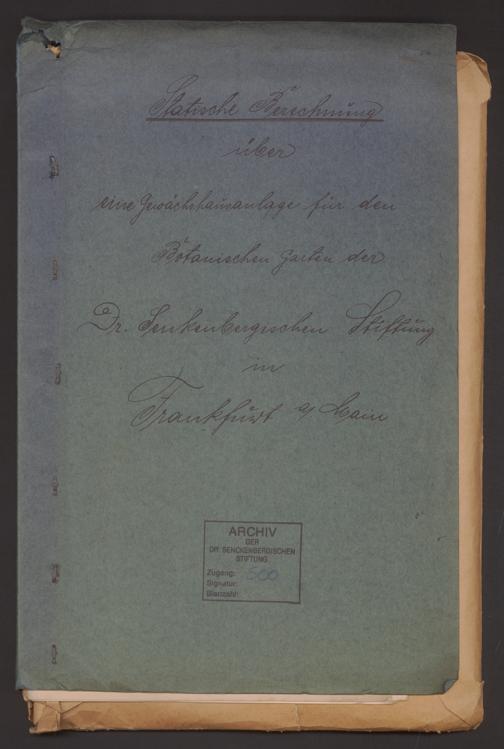 Statische Berechnung
über
eine Gewächshausanlage für den
Botanischen Garten der
Dr. Senkenbergischen Stiftung
in
Frankfurt a/Main
ARCHIV
DER
DR. SENCKENBERGISCHEN
STIFTUNG
Zugang: 500
Signatur:
Blattzahl: